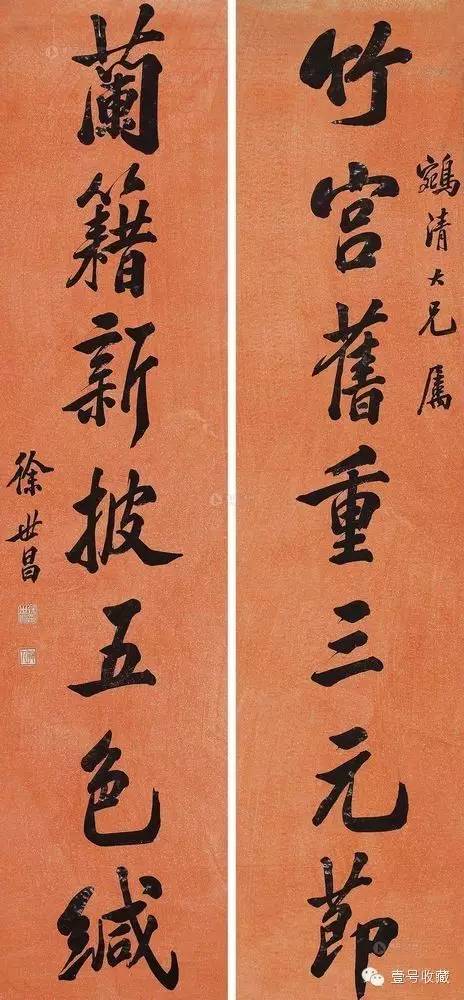 鵷清大兄属
竹宫舊重三元莭
蘭籍新披五色緘
徐世昌
壹号收藏